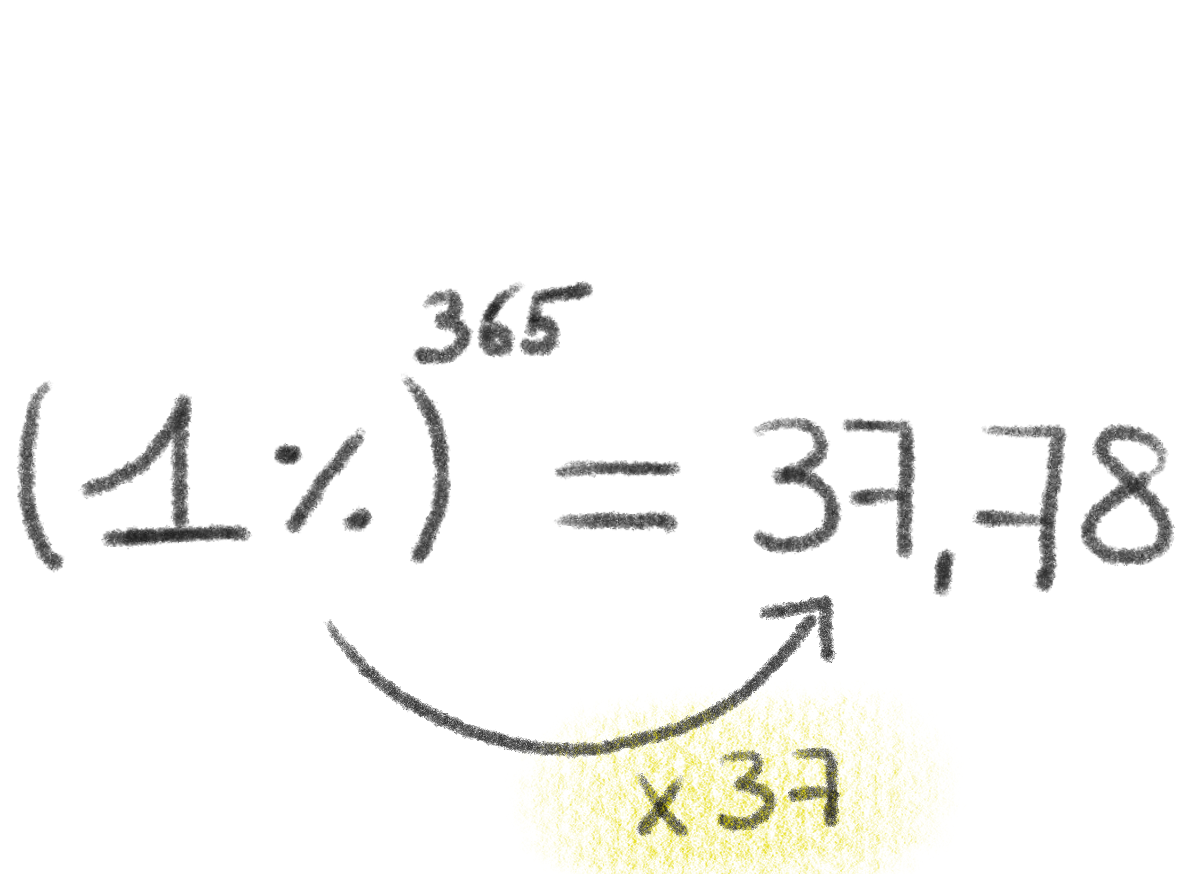 (1%)³⁶⁵ = 37,78
x 37